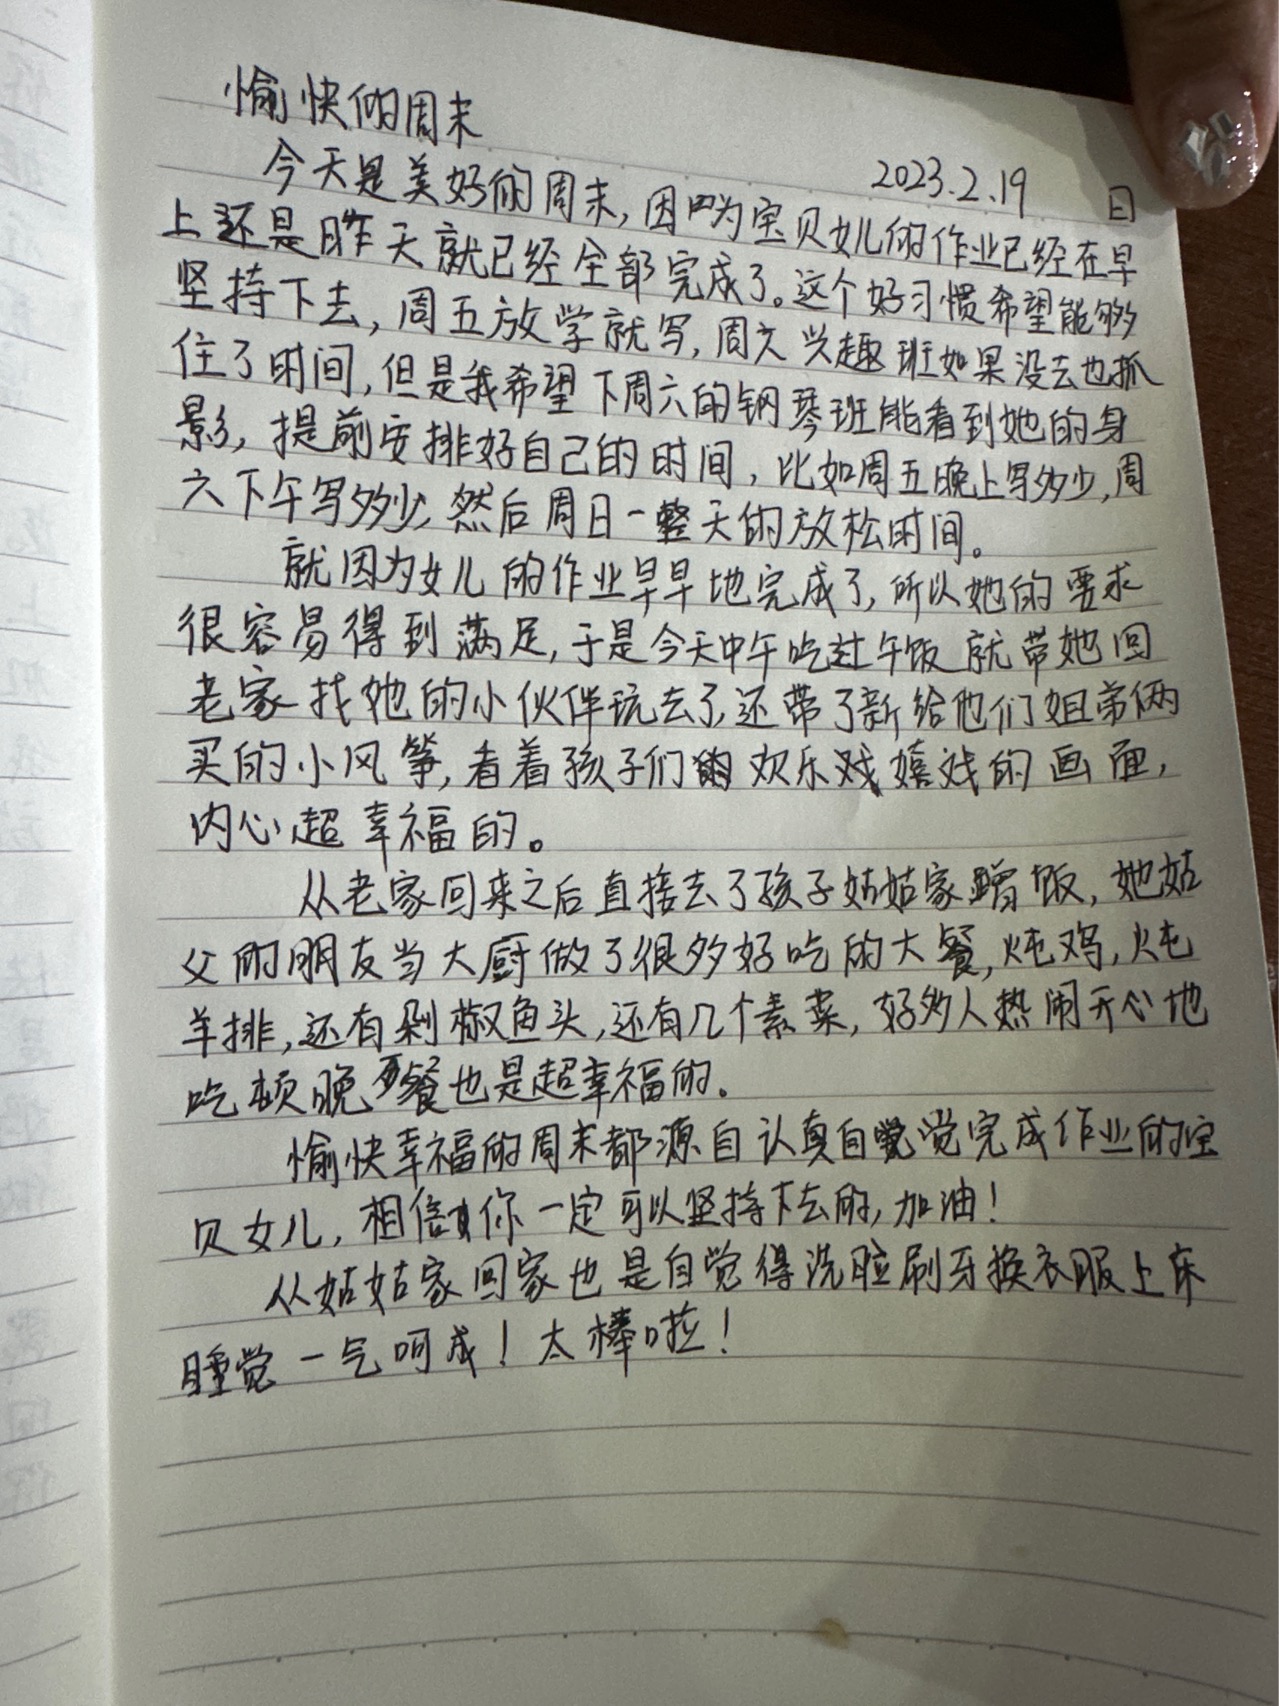 愉快的周末
2023.2.19 日
今天是美好的周末,因为宝贝女儿的作业已经在早
上还是昨天就已经全部完成了。这个好习惯希望能够
坚持下去,周五放学就写,周六兴趣班如果没去也抓
住了时间,但是我希望下周六的钢琴班能看到她的身
影,提前安排好自己的时间,比如周五晚上写多少,周
六下午写多少,然后周日一整天的放松时间。
就因为女儿的作业早早地完成了,所以她的要求
很容易得到满足,于是今天中午吃过午饭就带她回
老家找她的小伙伴玩去了,还带了新给他们姐弟俩
买的小风筝,看着孩子们欢乐戏嬉戏的画面,
内心超幸福的。
从老家回来之后直接去了孩子姑姑家蹭饭,她姑
父的朋友当大厨做了很多好吃的大餐,炖鸡,炖
羊排,还有剁椒鱼头,还有几个素菜,好多人热闹开心地
吃顿晚餐也是超幸福的。
愉快幸福的周末都源自认真自觉完成作业的宝
贝女儿,相信你一定可以坚持下去的,加油!
从姑姑家回家也是自觉得洗脸刷牙换衣服上床
睡觉一气呵成!太棒啦!